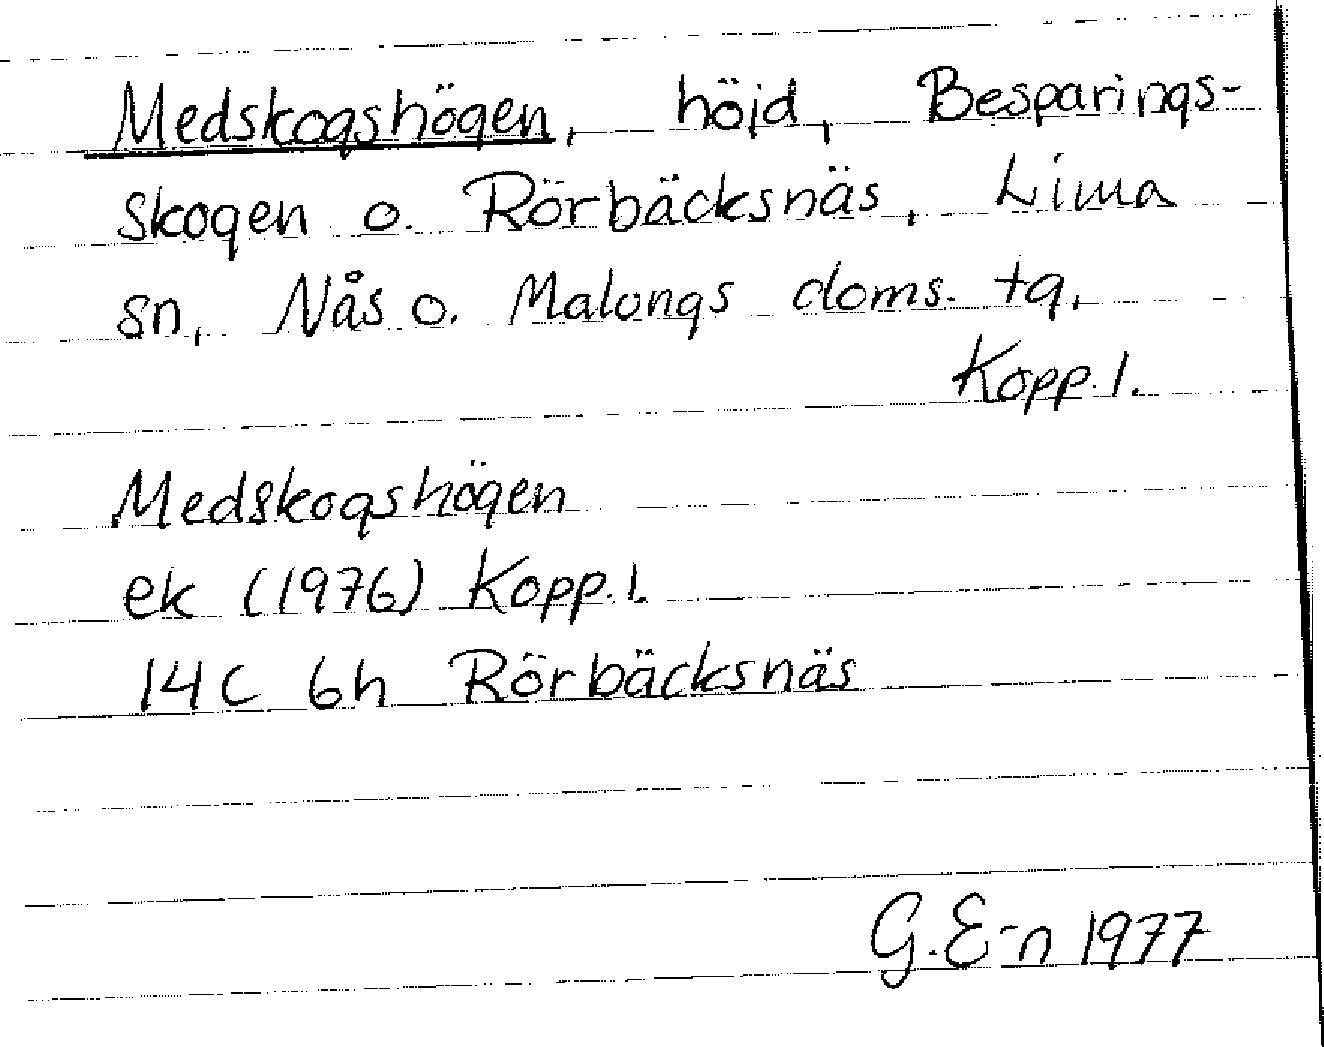 Medskogshögen, höjd, Besparings-
skogen o. Rörbäcksnäs, Lima
sn, Nås o. Malungs doms. tg,
Kopp. l.
Medskogshögen
ek (1976) Kopp. l.
14C 6h Rörbäcksnäs
G. E-n 1977